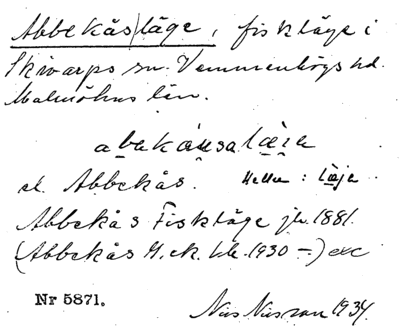 Abbekås|läge, fiskläge i
Skivarps sn. Vemmenhögs hd.
Malmöhus län.
abakåusalæja
el. Abbekås. Mellu: læja
Abbekås Fiskläge jb. 1881.
(Abbekås G. ek. bl. 1930 –) etc
Nr 5871.
Nils Nilsson 1934.